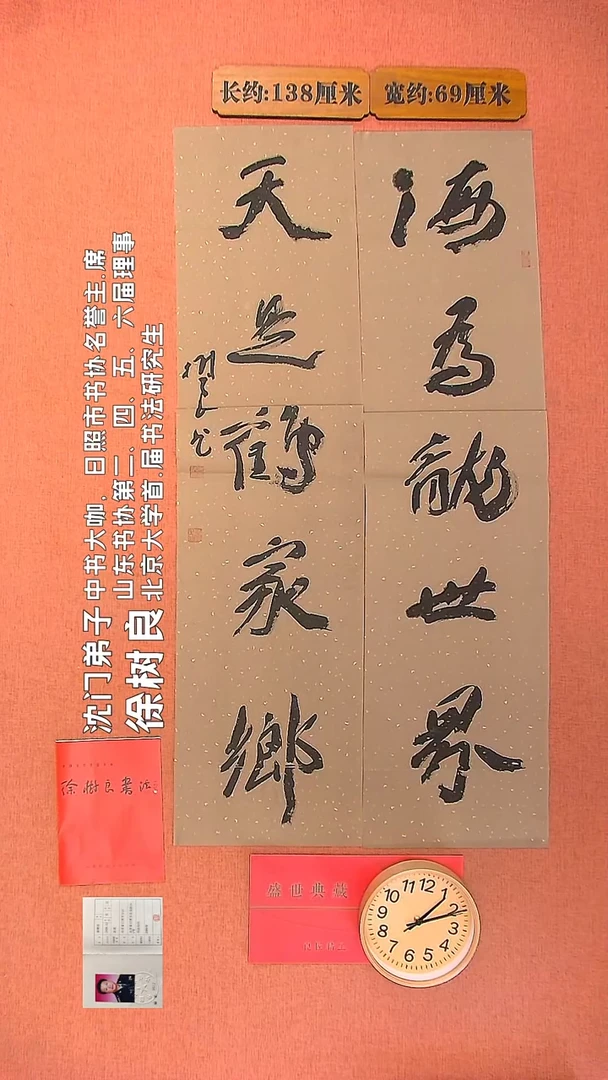 长约:138厘米
宽约:69厘米
海为龙世界
天是鹤家乡
树良书
沈门弟子
徐树良
中书大咖,日照市书协名誉主.席
山东书协第三、四、五、六届理事
北京大学首.届书法研究生
徐树良书法
盛世典藏
12
1
2
3
4
5
6
7
8
9
10
11